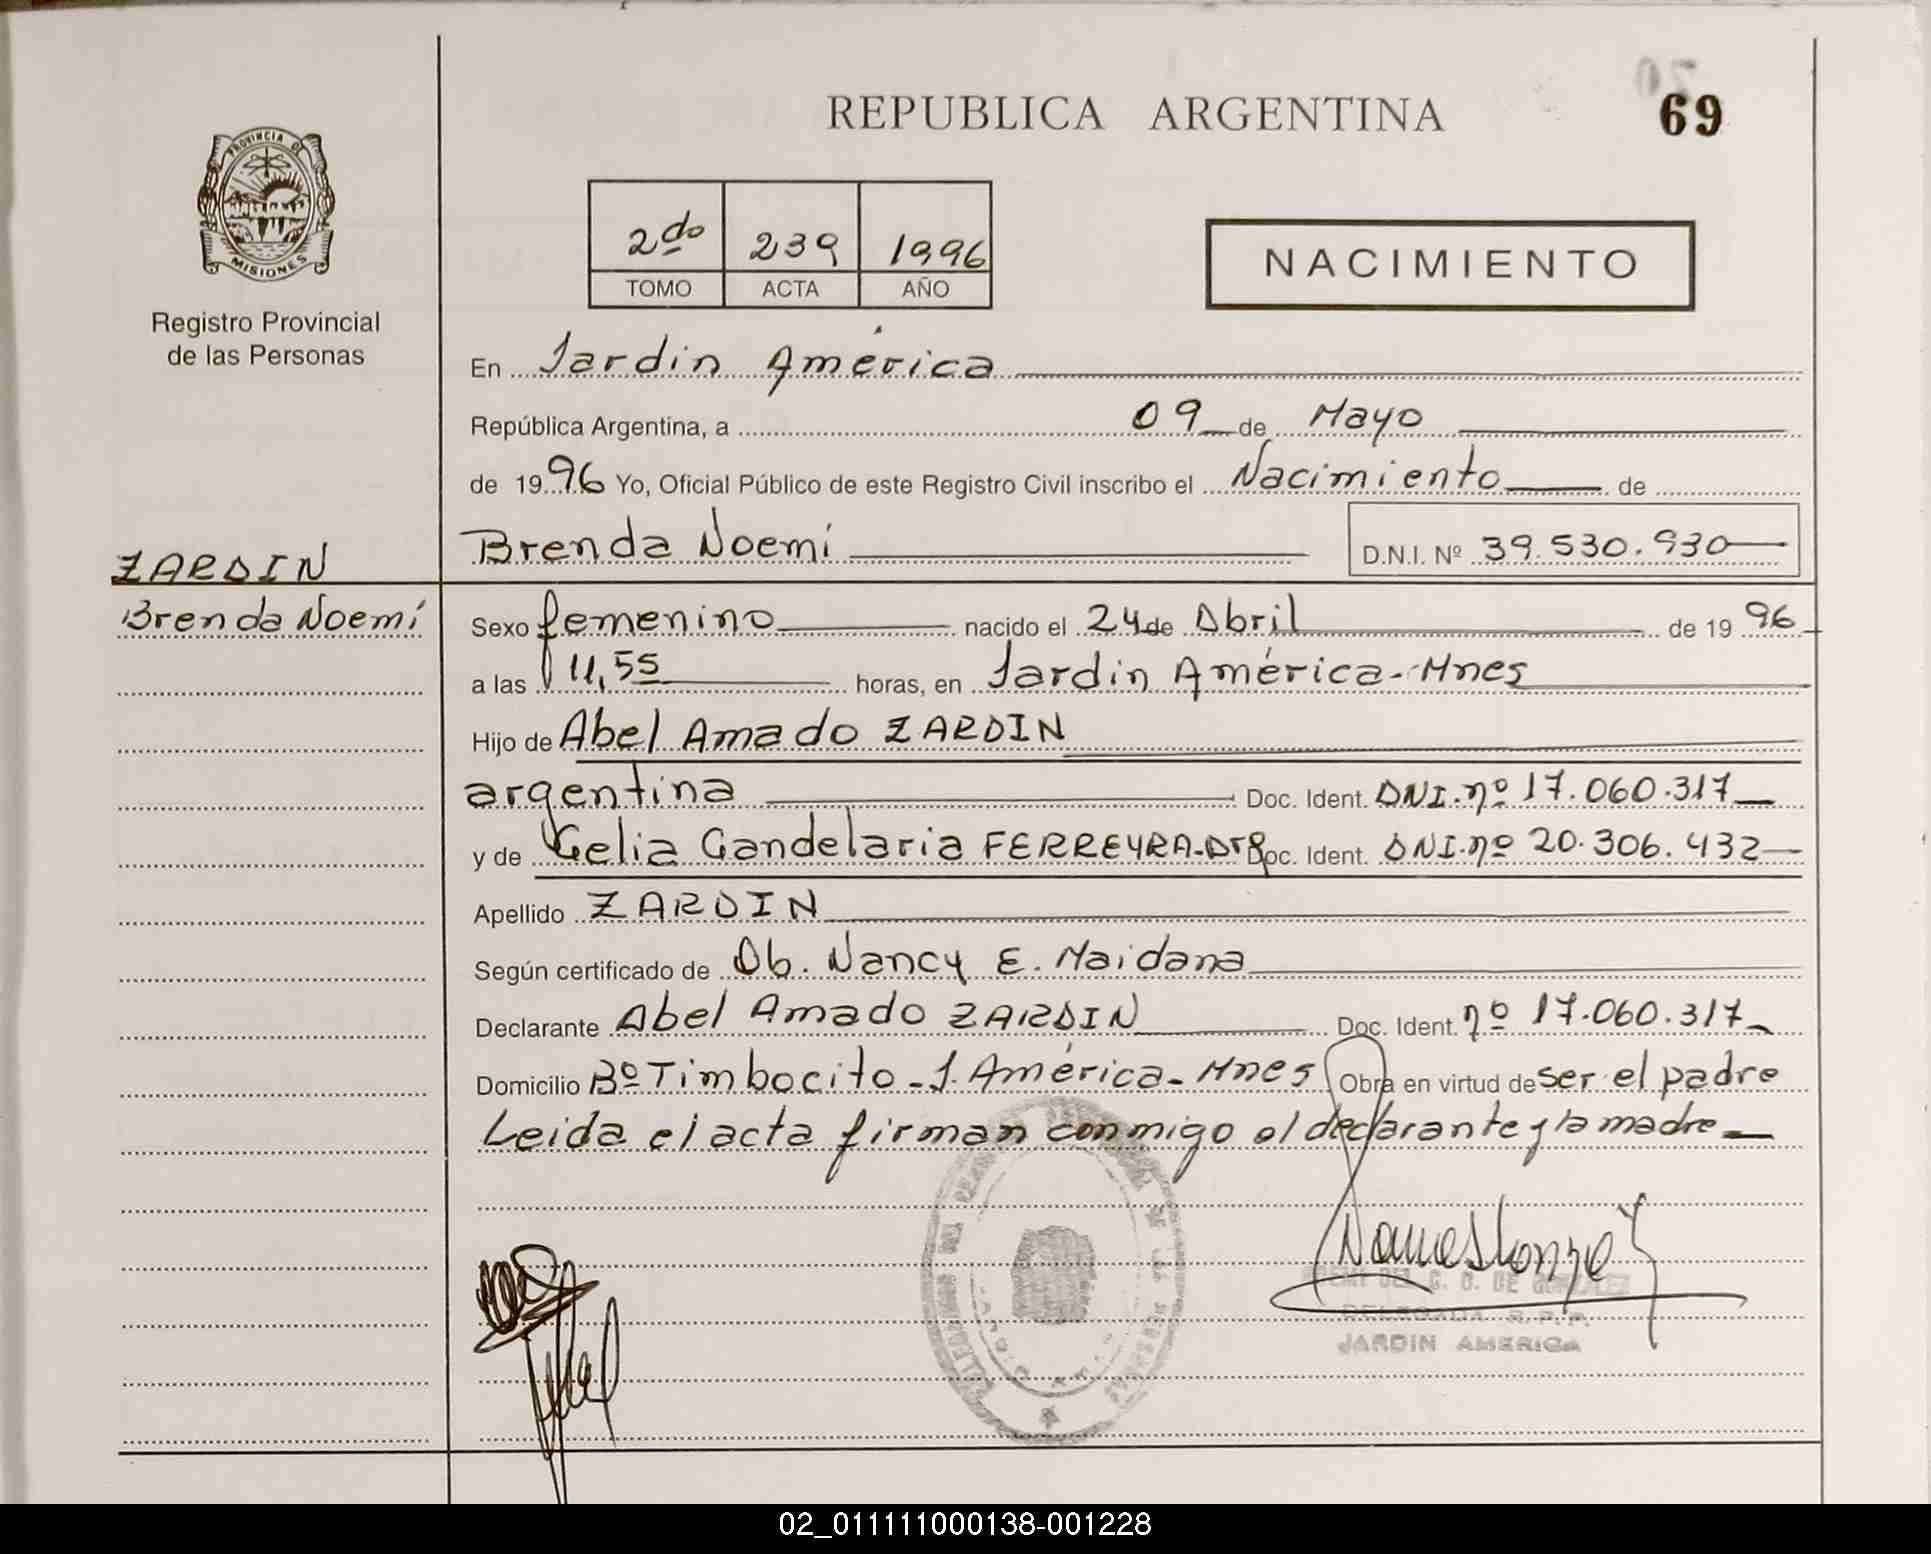 REPUBLICA ARGENTINA
69
PROVINCIA DE
MISIONES
Registro Provincial
de las Personas
2do 239 1996
TOMO ACTA AÑO
NACIMIENTO
En Jardin América
República Argentina, a 09 de Mayo
de 1996 Yo, Oficial Público de este Registro Civil inscribo el Nacimiento de
Brenda Noemí D.N.I. Nº 39.530.930
ZARDIN
Brenda Noemí
Sexo femenino nacido el 24 de Abril de 1996
a las 11,55 horas, en Jardin América-Mnes
Hijo de Abel Amado ZARDIN
argentina Doc. Ident. DNI.nº 17.060.317
y de Celia Candelaria FERREYRA- Doc. Ident. DNI.nº 20.306.432
Apellido ZARDIN
Según certificado de Ob. Nancy E. Maidana
Declarante Abel Amado ZARDIN Doc. Ident. nº 17.060.317
Domicilio Bº Timbocito-J. América-Mnes Obra en virtud de ser el padre
Leida el acta firman conmigo el declarante y la madre
DE GONZALEZ
DELEGADA R.P.P.
JARDIN AMERICA
02_011111000138-001228